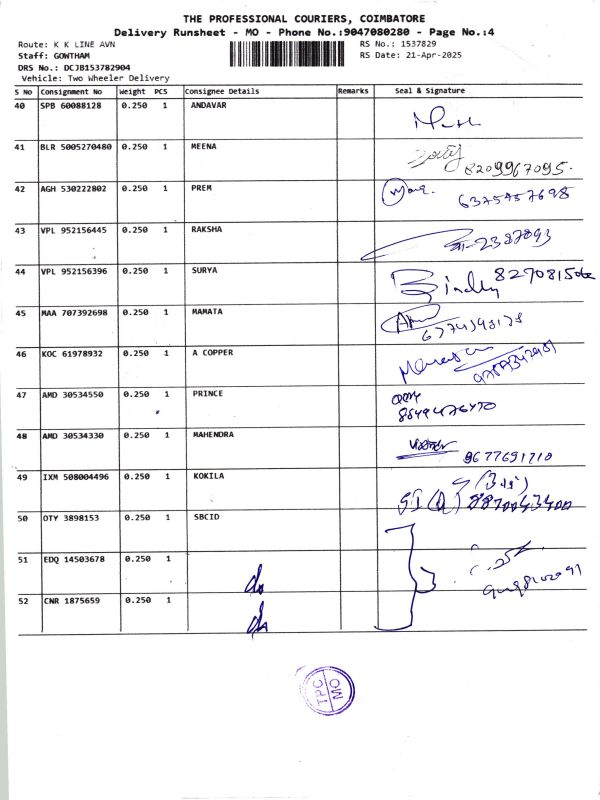 THE PROFESSIONAL COURIERS, COIMBATORE
Delivery Runsheet - MO - Phone No.:9047080280 - Page No.:4
Route: K K LINE AVN
RS No.: 1537829
Staff: GOWTHAM
RS Date: 21-Apr-2025
DRS No.: DCJB153782904
Vehicle: Two Wheeler Delivery
S No Consignment No Weight PCS Consignee Details Remarks Seal & Signature
40 SPB 60088128 0.250 1 ANDAVAR
41 BLR 5005270480 0.250 1 MEENA
8209967095.
42 AGH 530222802 0.250 1 PREM
6375757698
43 VPL 952156445 0.250 1 RAKSHA
44 VPL 952156396 0.250 1 SURYA
45 MAA 707392698 0.250 1 MAMATA
46 KOC 61978932 0.250 1 A COPPER
47 AMD 30534550 0.250 1 PRINCE
48 AMD 30534330 0.250 1 MAHENDRA
9677691710
49 IXM 508004496 0.250 1 KOKILA
50 OTY 3898153 0.250 1 SBCID
51 EDQ 14503678 0.250 1
do
52 CNR 1875659 0.250 1
do
TPC
MO